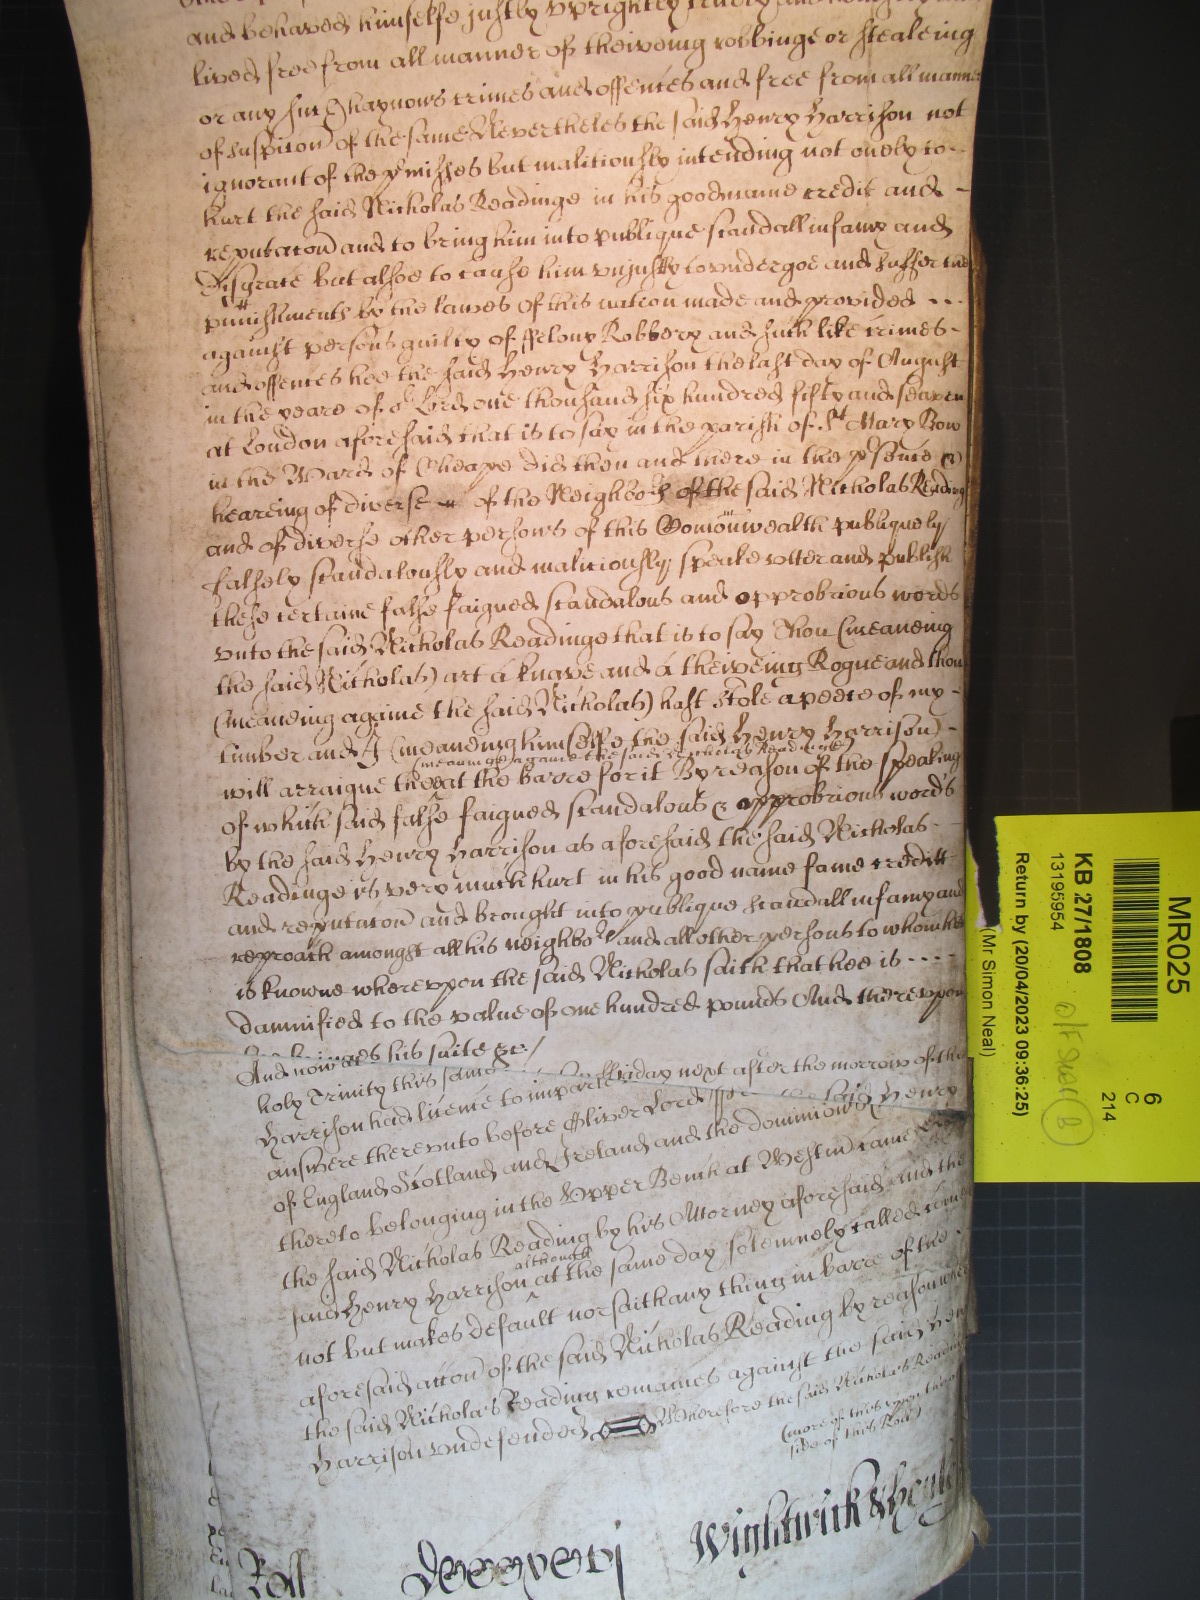 and behaved himselfe justly uprightly truely and
lived free from all manner of theiveing robbinge or stealeing
or any such haynous crimes and offences and free from all manner
of suspicon of the same Nevertheles the said Henry Harrison not
ignorant of the pmisses but malitiously intending not onely to
hurt the said Nicholas Readinge in his good name credit and
reputacon and to bring him into publique scandall infamy and
disgrace but alsoe to cause him unjustly to undergoe and suffer the
punishments by the lawes of this nation made and provided
against persons guilty of ffelony Robbery and such like crimes
and offences hee the said Henry Harrison the last day of August
in the yeare of or Lord one thousand six hundred fifty and seaven
at London aforesaid that is to say in the parish of St Mary Bow
in the Ward of Cheape did then and there in the psence &
heareing of diverse of the Neighbors of the said Nicholas Reading
and of diverse other persons of this Comonwealth publiquely
falsely scandalously and maliciously speake utter and publish
these certaine false faigned scandalous and opprobrious words
unto the said Nicholas Readinge that is to say Thou (meaneing
the said Nicholas) art a knave and a theiveing Rogue and thou
(meaneing againe the said Nicholas) hast stole a peece of my
timber and I (meaneing himselfe the said Henry Harrison)
(meaninge againe the said Nicholas Readinge)
will arraigne thee at the barre for it By reason of the speaking
of which said false faigned scandalous & opprobrious words
by the said Henry Harrison as aforesaid the said Nicholas
Readinge is very much hurt in his good name fame creditt
and reputacon and brought into publique scandall infamy and
reproach amongst all his neighbors and all other persons to whom hee
is knowne whereupon the said Nicholas saith that hee is
damnified to the value of one hundred pounds And thereupon
his suite &c
And now at this day that is to say ffriday next after the morrow of the
holy Trinity this same said Henry
Harrison had licence to imparle
answere thereunto before Oliver Lord of England
of England Scotland and Ireland and the dominions
thereto belonging in the Upper Bench at Westm came
the said Nicholas Reading by his Attorney aforesaid and the
although
said Henry Harrison at the same day solemnely called came
not but makes default nor saith any thing in barre of the
aforesaid accon of the said Nicholas Reading by reason
the said Nicholas Reading remaines against the said Henry
Harrison undefended Wherefore the said Nicholas Reading
(more of this upon the
side of this Roll)
Roll
Wightwick &
MR025
6
C
214
KB 27/1808
13195954
Return by (20/04/2023 09:36:25)
(Mr Simon Neal)